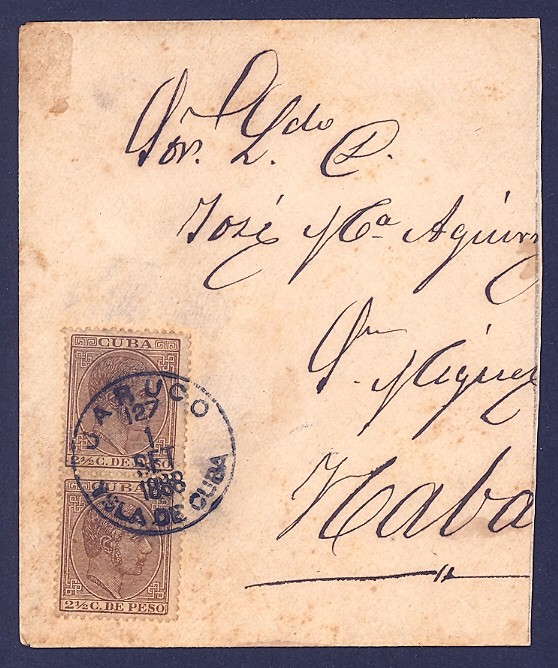 Sor. Ldo. D.
José Ma Aguirr
Sn Miguel
Haba
CUBA
2½ C. DE PESO
JARUCO
127
1
SET
1888
ISLA DE CUBA
CUBA
2½ C. DE PESO